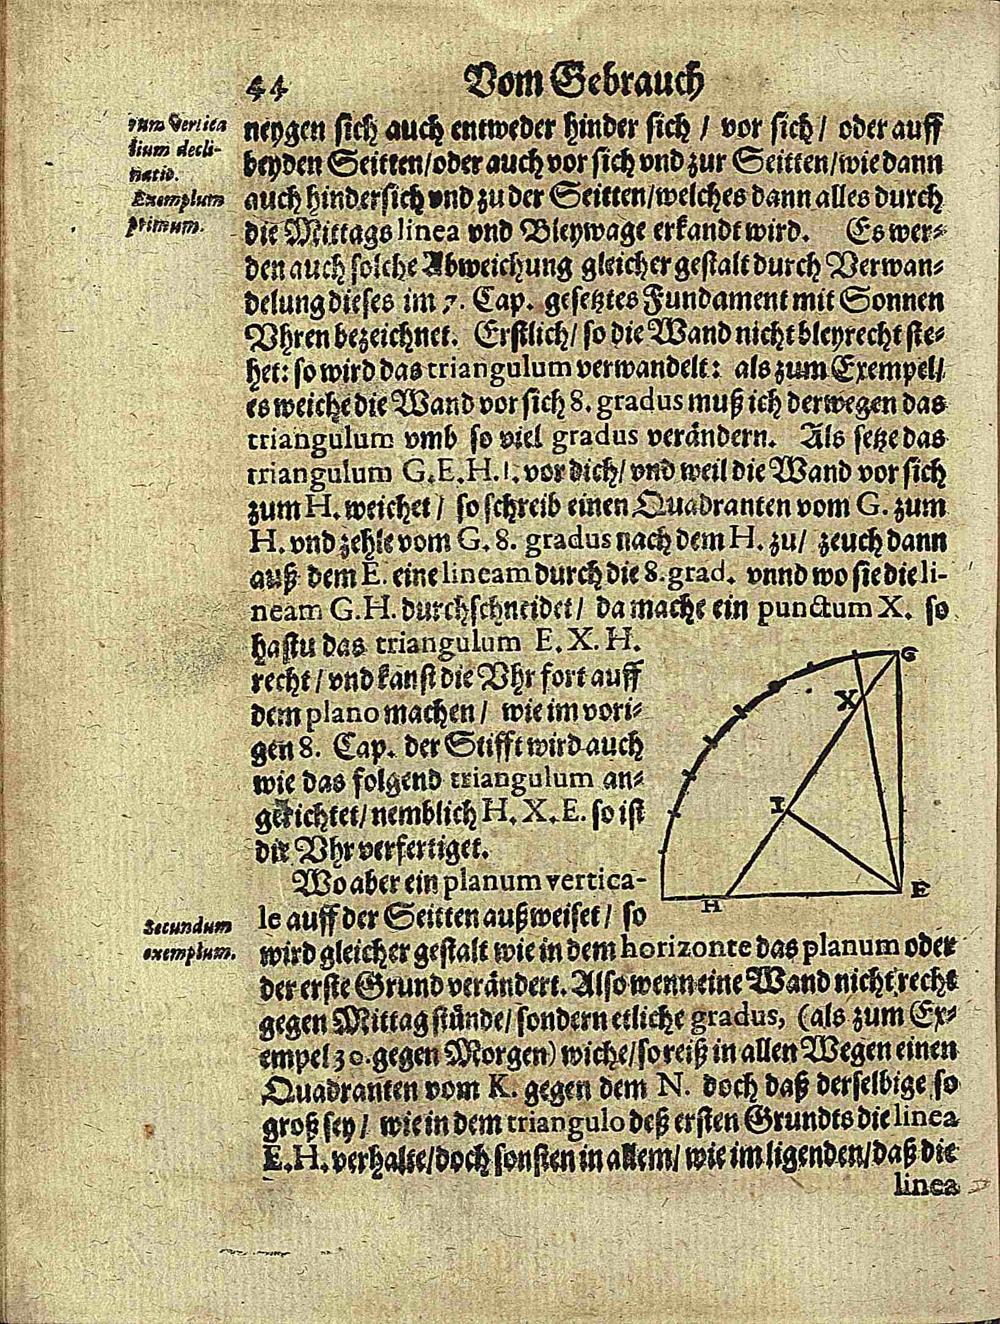 44 Vom Gebrauch
rum Vertica
lium decli-
natio.
Exemplum
primum.
neygen sich auch entweder hinder sich / vor sich / oder auff
beyden Seitten/oder auch vor sich vnd zur Seitten/wie dann
auch hindersich vnd zu der Seitten/welches dann alles durch
die Mittags linea vnd Bleywage erkandt wird. Es wer⸗
den auch solche Abweichung gleicher gestalt durch Verwan⸗
delung dieses im 7. Cap. gesetztes Fundament mit Sonnen
Vhren bezeichnet. Erstlich/ so die Wand nicht bleyrecht ste⸗
het: so wird das triangulum verwandelt: als zum Exempel/
es weiche die Wand vor sich 8. gradus muß ich derwegen das
triangulum vmb so viel gradus verändern. Als setze das
triangulum G.E.H.I. vor dich/ vnd weil die Wand vor sich
zum H. weichet / so schreib einen Quadranten vom G. zum
H. vnd zehle vom G. 8. gradus nach dem H. zu/ zeuch dann
auß dem E. eine lineam durch die 8. grad. vnnd wo sie die li-
neam G.H. durchschneidet/ da mache ein punctum X. so
hastu das triangulum E.X.H.
recht / vnd kanst die Vhr fort auff
dem plano machen / wie im vori⸗
gen 8. Cap. der Stifft wird auch
wie das folgend triangulum an⸗
gerichtet/ nemblich H.X.E. so ist
die Vhr verfertiget.
G
X
I
H
E
Wo aber ein planum vertica-
le auff der Seitten außweiset / so
Secundum
exemplum.
wird gleicher gestalt wie in dem horizonte das planum oder
der erste Grund verändert. Also wenn eine Wand nicht recht
gegen Mittag stünde/ sondern etliche gradus, (als zum Ex⸗
empel 30. gegen Morgen) wiche/so reiß in allen Wegen einen
Quadranten vom K. gegen dem N. doch daß derselbige so
groß sey / wie in dem triangulo deß ersten Grundts die linea
E.H. verhalte/doch sonsten in allem/ wie im ligenden/daß die
linea